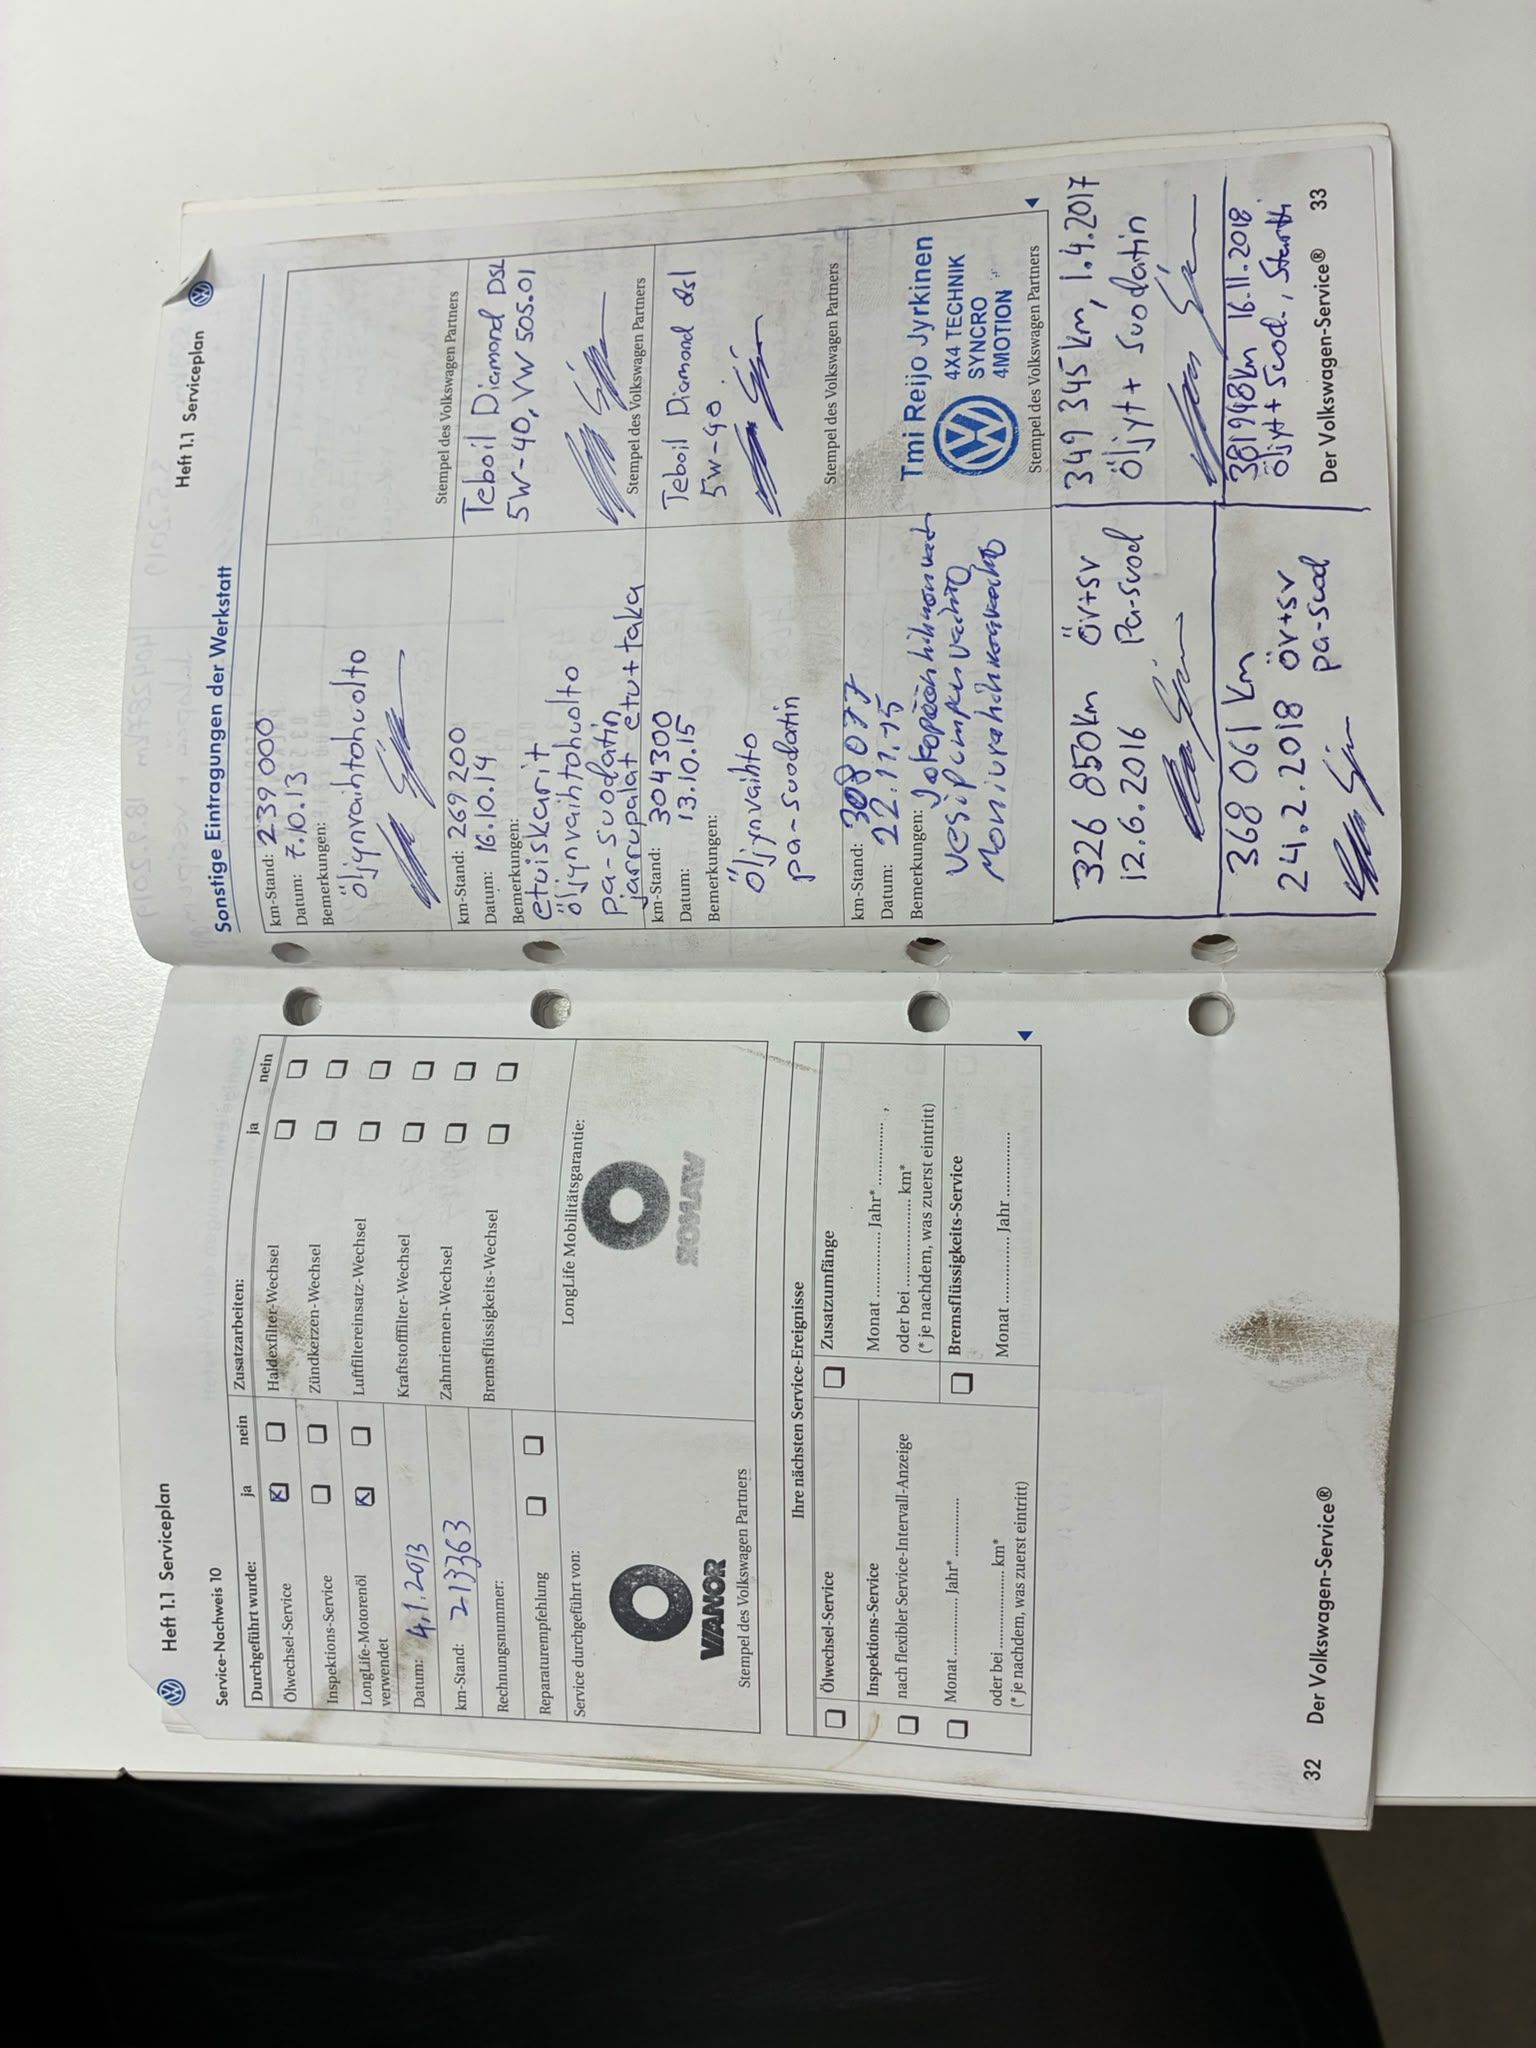 Heft 1.1 Serviceplan
Service-Nachweis 10
Durchgeführt wurde:
ja
nein
Ölwechsel-Service
Inspektions-Service
LongLife-Motorenöl
verwendet
Datum: 4.1.2013
km-Stand: 213363
Rechnungsnummer:
Reparaturempfehlung
Zusatzarbeiten:
ja
nein
Haldexfilter-Wechsel
Zündkerzen-Wechsel
Luftfiltereinsatz-Wechsel
Kraftstofffilter-Wechsel
Zahnriemen-Wechsel
Bremsflüssigkeits-Wechsel
Service durchgeführt von:
VIANOR
Stempel des Volkswagen Partners
LongLife Mobilitätsgarantie:
VIANOR
Ihre nächsten Service-Ereignisse
Ölwechsel-Service
Inspektions-Service
nach flexibler Service-Intervall-Anzeige
Monat ............. Jahr* ................
oder bei ...................... km*
(* je nachdem, was zuerst eintritt)
Zusatzumfänge
Monat ............. Jahr* ................ ,
oder bei ...................... km*
(* je nachdem, was zuerst eintritt)
Bremsflüssigkeits-Service
Monat ............. Jahr ................
32 Der Volkswagen-Service®
Heft 1.1 Serviceplan
Sonstige Eintragungen der Werkstatt
km-Stand: 239000
Datum: 7.10.13
Bemerkungen:
öljynvaihtohuolto
Stempel des Volkswagen Partners
km-Stand: 269200
Datum: 16.10.14
Bemerkungen:
etuiskarit
öljynvaihtohuolto
pa-suodatin
jarrupalat etu+taka
Teboil Diamond DSL
5W-40, VW 505.01
Stempel des Volkswagen Partners
km-Stand: 304300
Datum: 13.10.15
Bemerkungen:
öljynvaihto
pa-suodatin
Teboil Diamond dsl
5W-40
Stempel des Volkswagen Partners
km-Stand: 308077
Datum: 22.11.15
Bemerkungen: Jakopään hihnan vaihto
Vesipumpun vaihto
Moniurahihnan vaihto
Tmi Reijo Jyrkinen
4X4 TECHNIK
SYNCRO
4MOTION
Stempel des Volkswagen Partners
326 850km öv+sv
12.6.2016 Pa-suod
349 345 km, 1.4.2017
Öljyt + Suodatin
368 061 km
24.2.2018 öv+sv
pa-suod
381948km 16.11.2018
Öljyt + Suod., Startti
Der Volkswagen-Service® 33